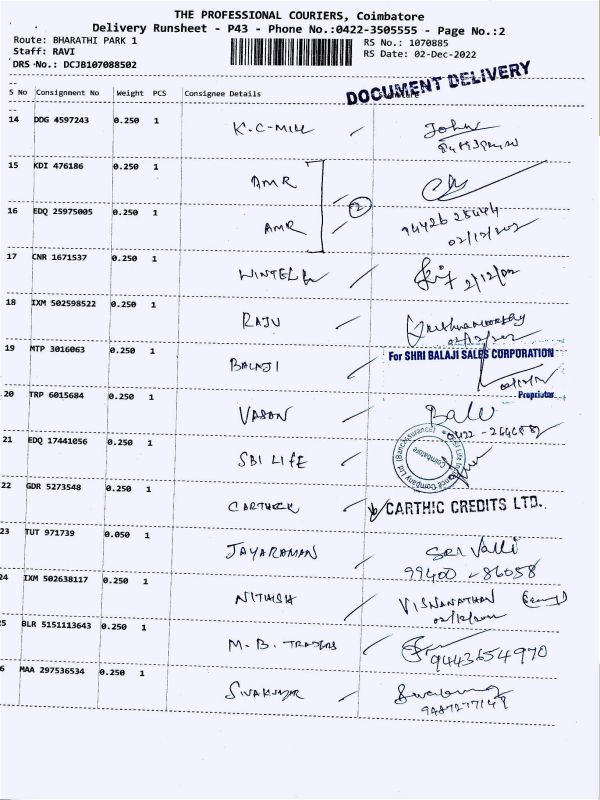 THE PROFESSIONAL COURIERS, Coimbatore
Delivery Runsheet - P43 - Phone No.:0422-3505555 - Page No.:2
Route: BHARATHI PARK 1 RS No.: 1070885
Staff: RAVI RS Date: 02-Dec-2022
DRS No.: DCJB107088502
DOCUMENT DELIVERY
S No Consignment No Weight PCS Consignee Details
14 DDG 4597243 0.250 1 K.C-MILL John
15 KDI 476186 0.250 1 AMR
2
16 EDQ 25975005 0.250 1 AMR
02/12/202
17 CNR 1671537 0.250 1 2/12/02
18 IXM 502598522 0.250 1 RAJU
19 MTP 3016063 0.250 1 BALAJI For SHRI BALAJI SALES CORPORATION
Proprietor
20 TRP 6015684 0.250 1 VASAN Balu
21 EDQ 17441056 0.250 1 SBI LIFE Coimbatore
22 GDR 5273548 0.250 1 CARTHICK CARTHIC CREDITS LTD.
23 TUT 971739 0.050 1 JAYARAMAN Sri Valli
99400 - 86058
24 IXM 502638117 0.250 1 NITHISH VISHANATHAN
25 BLR 5151113643 0.250 1 M.B. TRADERS 9443654970
26 MAA 297536534 0.250 1 SIVAKUMAR